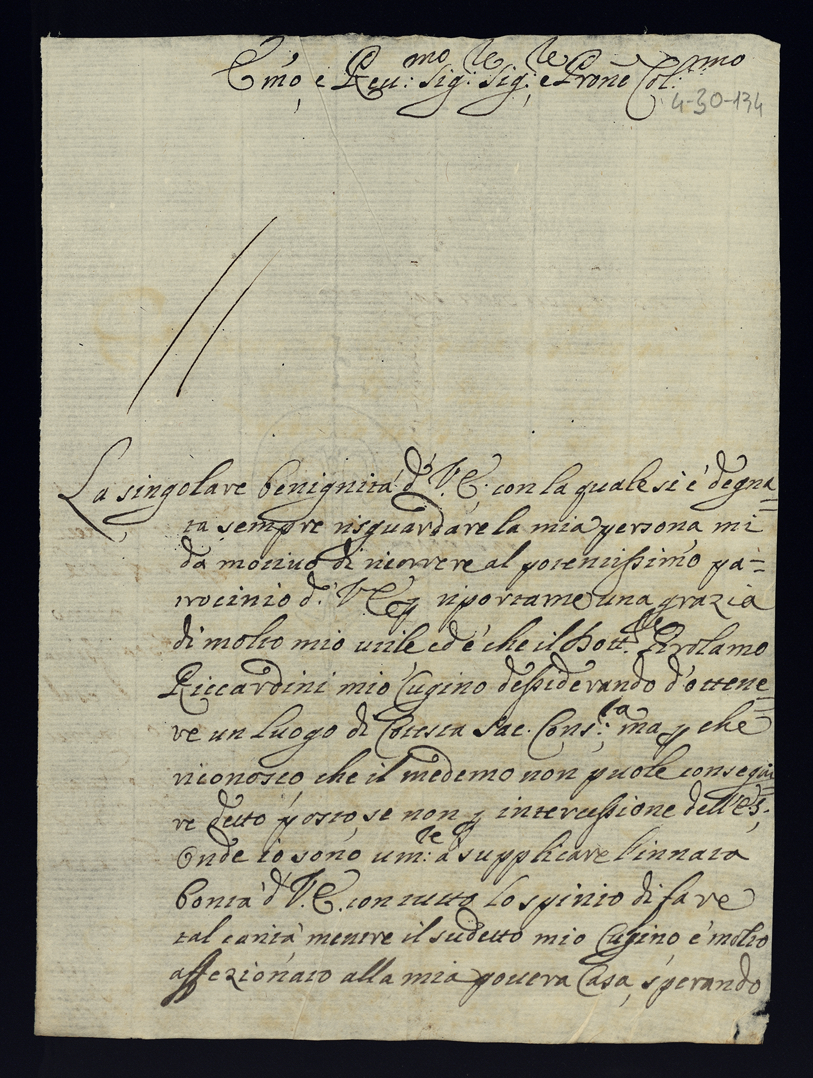 Emo, e Reu:mo Sig:re Sig:re, e Prone Col:mo
4-30-134
La singolare benignità d' V. E. con la quale si è degna=
ta sempre risguardare la mia persona mi
da motiuo di ricorrere al potentissimo pa=
trocinio d. V. E. p riportarne una grazia
di molto mio utile ed è che il Dott:re Girolamo
Riccardini mio Cugino dessiderando d'ottene=
re un luogo di Cotesta Sac. Cons:ta, ma p che
riconosco, che il medemo non puole consegui=
re detto posto se non p intercessione dell'E. S.,
Onde io sono um:te a supplicare l'innata
bontà d' V. E. con tutto lo spirito di fare
tal carità mentre il sudetto mio Cugino è molto
affezionato alla mia pouera Casa, sperando